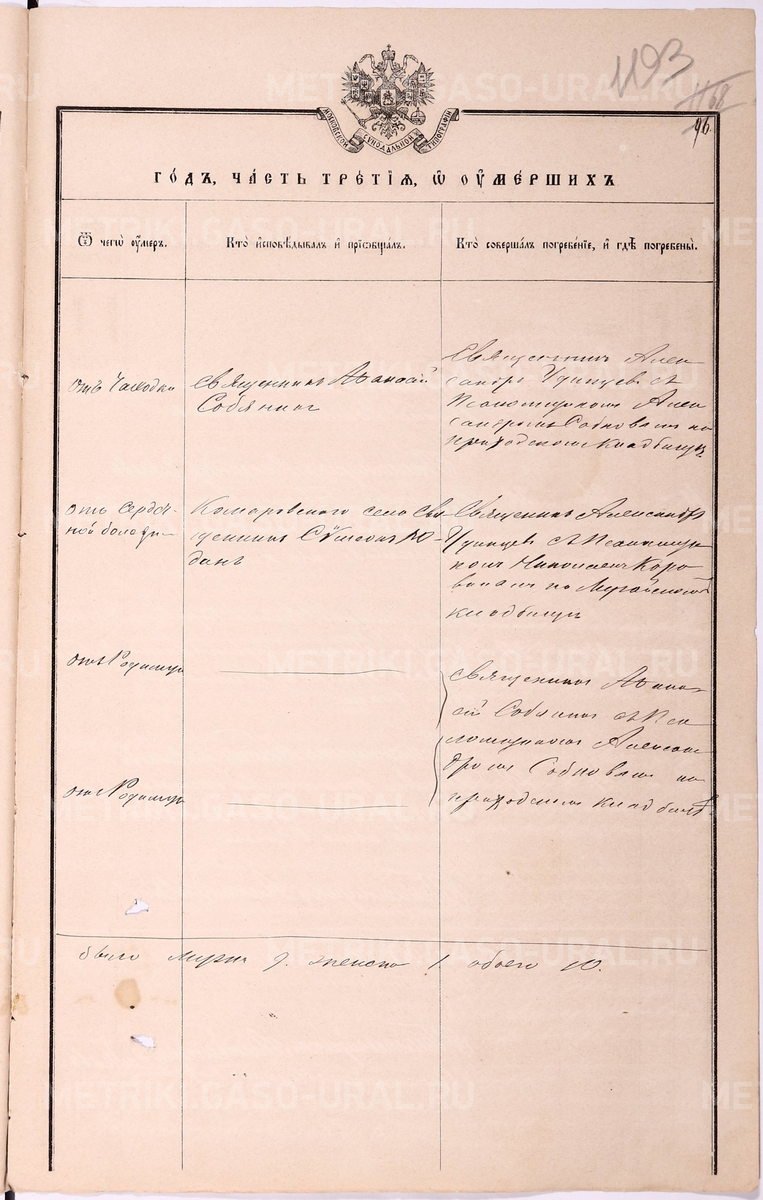 1193
1168
96.
МОСКОВСКОЙ СѴНОДАЛЬНОЙ ТИПОГРАФІИ
ГОДЪ, ЧАСТЬ ТРЕТІЯ, Ѡ ОУМЕРШИХЪ
Ѿ чегѡ оумеръ.
Кто исповѣдывалъ и пріобщалъ.
Кто совершалъ погребеніе, и гдѣ погребены.
отъ Чахотки
Священникъ Аѳанасій
Собянинъ
Священникъ Алек
сандръ Удинцевъ съ
Псаломщикомъ Алек
сандромъ Собновымъ на
приходскомъ кладбищѣ
отъ сердеч-
ной болѣзни
Комаровскаго села Свя
щенникъ Сѵмеонъ Ю-
данъ
Священникъ Александръ
Удинцевъ съ Псаломщи
комъ Николаемъ Коро
винымъ на Мугайскомъ
кладбищѣ
отъ Родимца
отъ Родимца
Священникъ Аѳана
сій Собянинъ съ Пса
ломщикомъ Алексан
дромъ Собновымъ на
приходскомъ кладбищѣ
было мужск 9. женска 1. обоего 10.
METRIKI.GASO-URAL.RU